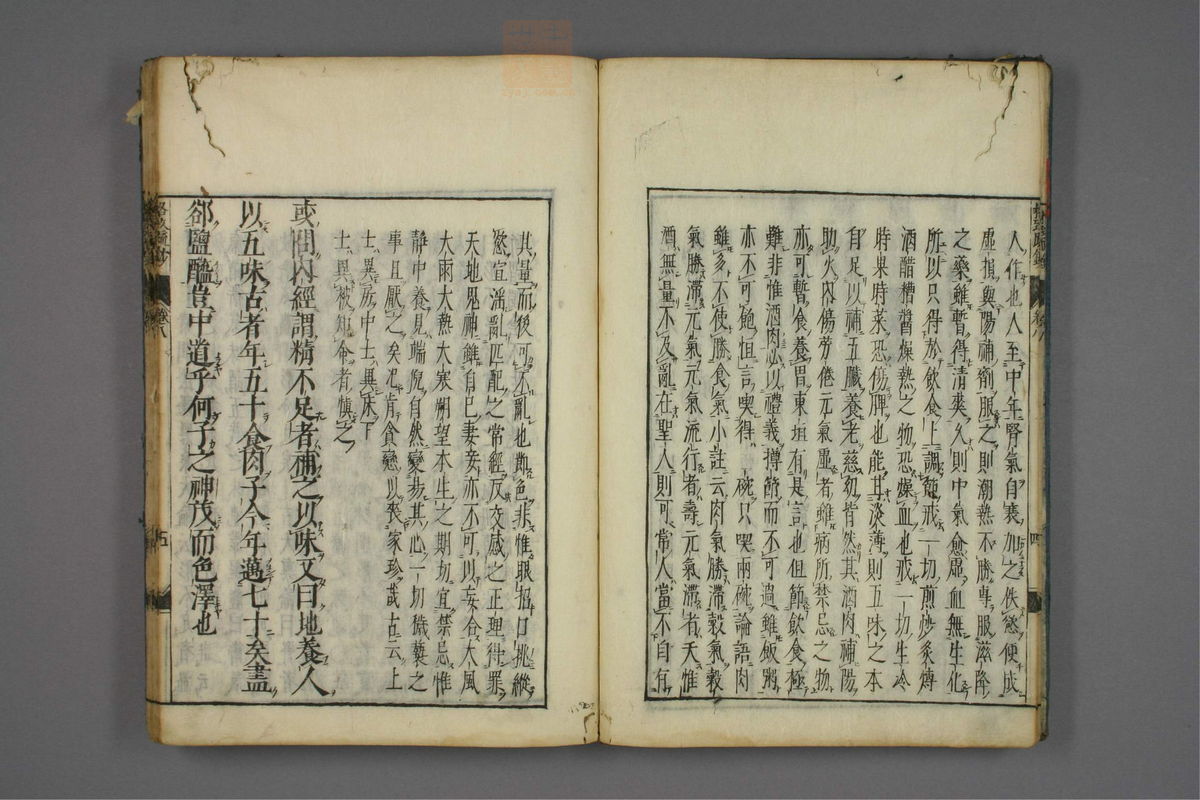 人作也人至中年腎氣自衰加之佚慾便成
虛損與陽補劑服之則潮熱不勝專服滋降
之藥雖暫得清爽久則中氣愈虛血無生化
所以只得於飲食上調護戒一切煎炒炙煿
酒醋糟醬燥熱之物恐燥血也戒一切生冷
時果時菜恐傷脾也能甘淡薄則五味之本
自足以補五臟養老慈幼皆然其酒肉補陽
助火內傷勞倦元氣虛者雖病所禁忌之物
亦可暫食養胃東垣有是言也但節飲食極
難非惟酒肉必以禮義撙節而不可過雖飯粥
亦不可飽恒言喫得一碗只喫兩碗論語肉
雖多不使勝食氣小註云肉氣勝滯穀氣穀
氣勝滯元氣元氣流行者壽元氣滯者夭惟
酒無量不及亂在聖人則可常人當不自有
其量而後可不亂也節色非惟眼招口挑縱
慾宣淫亂匹配之常經反交感之正理得罪
天地鬼神雖自己妻妾亦不可以妄合大風
大雨大熱大寒朔望本生之期切宜禁忌惟
靜中養見端倪自然變易其心一切穢褻之
事且厭之矣況肯貪戀以喪家珍哉古云上
士異房中士異床下
士異被知命者慎之
或問內經謂精不足者補之以味又曰地養人
以五味古者年五十食肉子今年邁七十矣盡
卻鹽醯豈中道乎何子之神茂而色澤也
卷八